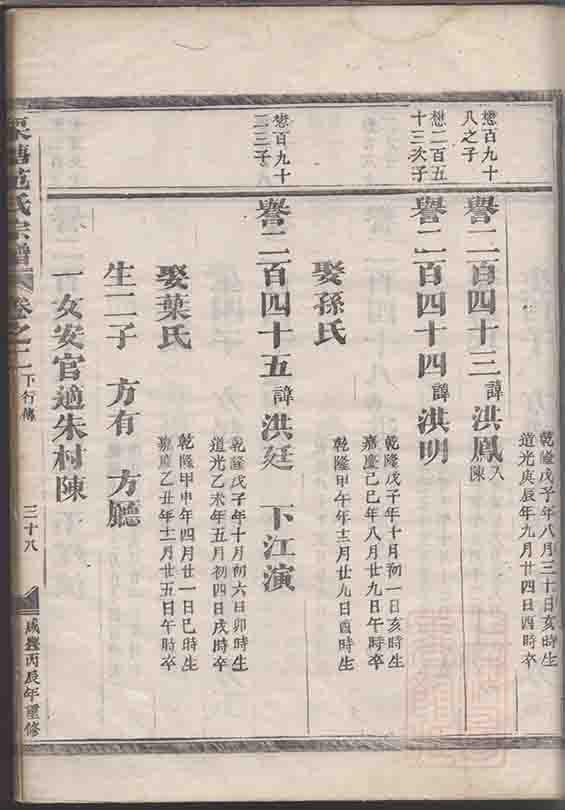 乾隆戊子年八月三十日亥時生
道光庚辰年九月廿四日酉時卒
懋百九十
八之子
譽二百四十三 諱 洪鳳 入陳
懋二百五
十三次子
譽二百四十四 諱 洪明
乾隆戊子年十月初一日亥時生
嘉慶己巳年八月廿九日午時卒
娶孫氏
乾隆甲午年十二月廿九日酉時生
懋百九十
三三子
譽二百四十五 諱 洪廷 下江演
乾隆戊子年十月初六日卯時生
道光乙未年五月初四日戌時卒
娶葉氏
乾隆甲申年四月廿一日巳時生
嘉慶乙丑年十二月廿五日午時卒
生二子 方有 方廳
一女安官適朱村陳
范氏宗譜 卷之二 下行傳 三十八 咸豐丙辰年重修